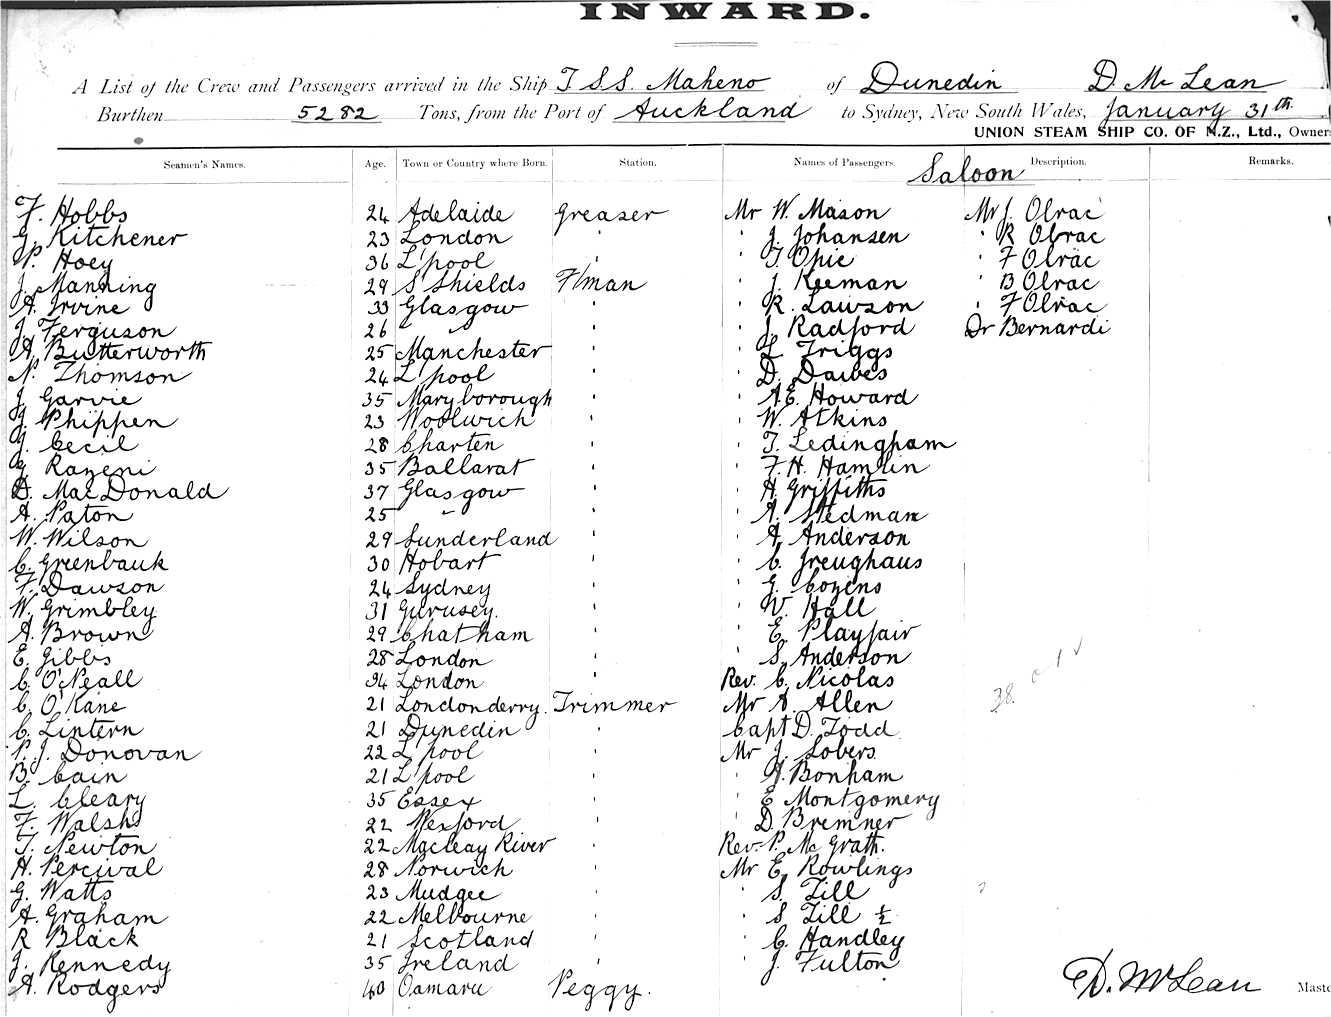 INWARD.
A List of the Crew and Passengers arrived in the Ship T.S.S. Maheno of Dunedin D. McLean
Burthen 5282 Tons, from the Port of Auckland to Sydney, New South Wales, January 31th
UNION STEAM SHIP CO. OF N.Z., Ltd., Owners
Seamen's Names. Age. Town or Country where Born. Station. Names of Passengers. Description. Remarks.
Saloon
F. Hobbs 24 Adelaide Greaser Mr W. Mason Mr J. Olrac
G. Kitchener 23 London " " J. Johansen " R Olrac
P. Hoey 36 L'pool " " T. Opie " F Olrac
J. Manning 29 S Shields F/man " J. Keeman " B Olrac
A. Irvine 33 Glasgow " " R. Lawson " F Olrac
J. Ferguson 26 " " " J. Radford Dr Bernardi
A. Butterworth 25 Manchester " " L Triggs
N. Thomson 24 L'pool " " D. Dawes
J. Garvie 35 Maryborough " " A.E. Howard
G. Phippen 23 Woolwich " " W. Atkins
J. Cecil 28 Charten " " T. Ledingham
G. Razeni 35 Ballarat " " F.H. Hamlin
D. MacDonald 37 Glasgow " " H Griffiths
A. Paton 25 " " " A. Stedman
W. Wilson 29 Sunderland " " A. Anderson
C. Greenbauk 30 Hobart " " C. Greughaus
F. Dawson 24 Sydney " " G. Cozens
W. Grimbley 31 Gurusey. " " W. Hall
A. Brown 29 Chatham " " E. Playfair
E. Gibbs 28 London " " S. Anderson
C. O'Neall 34 London " Rev. C. Nicolas
C. O'Kane 21 Londonderry. Trimmer Mr A. Allen 38.
C. Lintern 21 Dunedin " Capt D. Todd
P. J. Donovan 22 L'pool " Mr J. Sobers
B. Cain 21 L'pool " " H. Bonham
L. Cleary 35 Essex " " E Montgomery
F. Walsh 22 Wexford " " D. Bremner
T. Newton 22 Macleay River " Rev. P. McGrath.
H. Percival 28 Norwich " Mr E. Rowlings
G. Watts 23 Mudgee " " S. Till
A. Graham 22 Melbourne " " S Till ½
R Black 21 Scotland " " C. Handley
J. Kennedy 35 Ireland " " J. Fulton
A. Rodgers 40 Oamaru Peggy.
D. McLean Maste